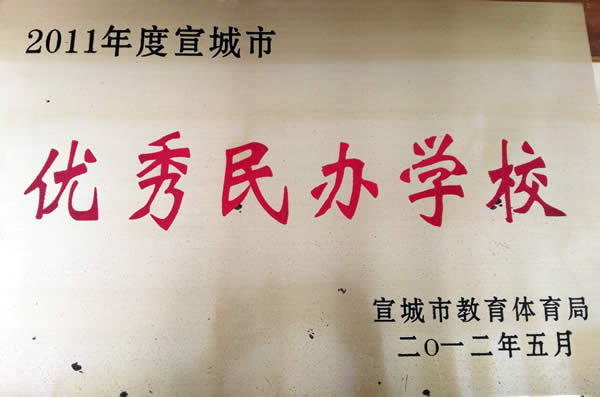 2011年度宣城市
优秀民办学校
宣城市教育体育局
二O一二年五月